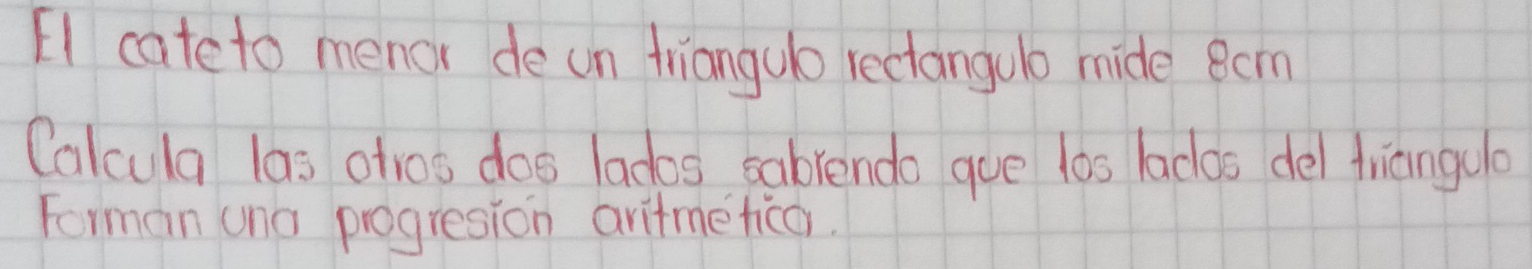 El cateto menor de un triangulo rectangulo mide 8cm
Calcula las otros dos lados sabiendo que los lados del triangulo
Forman una progresión aritmética.